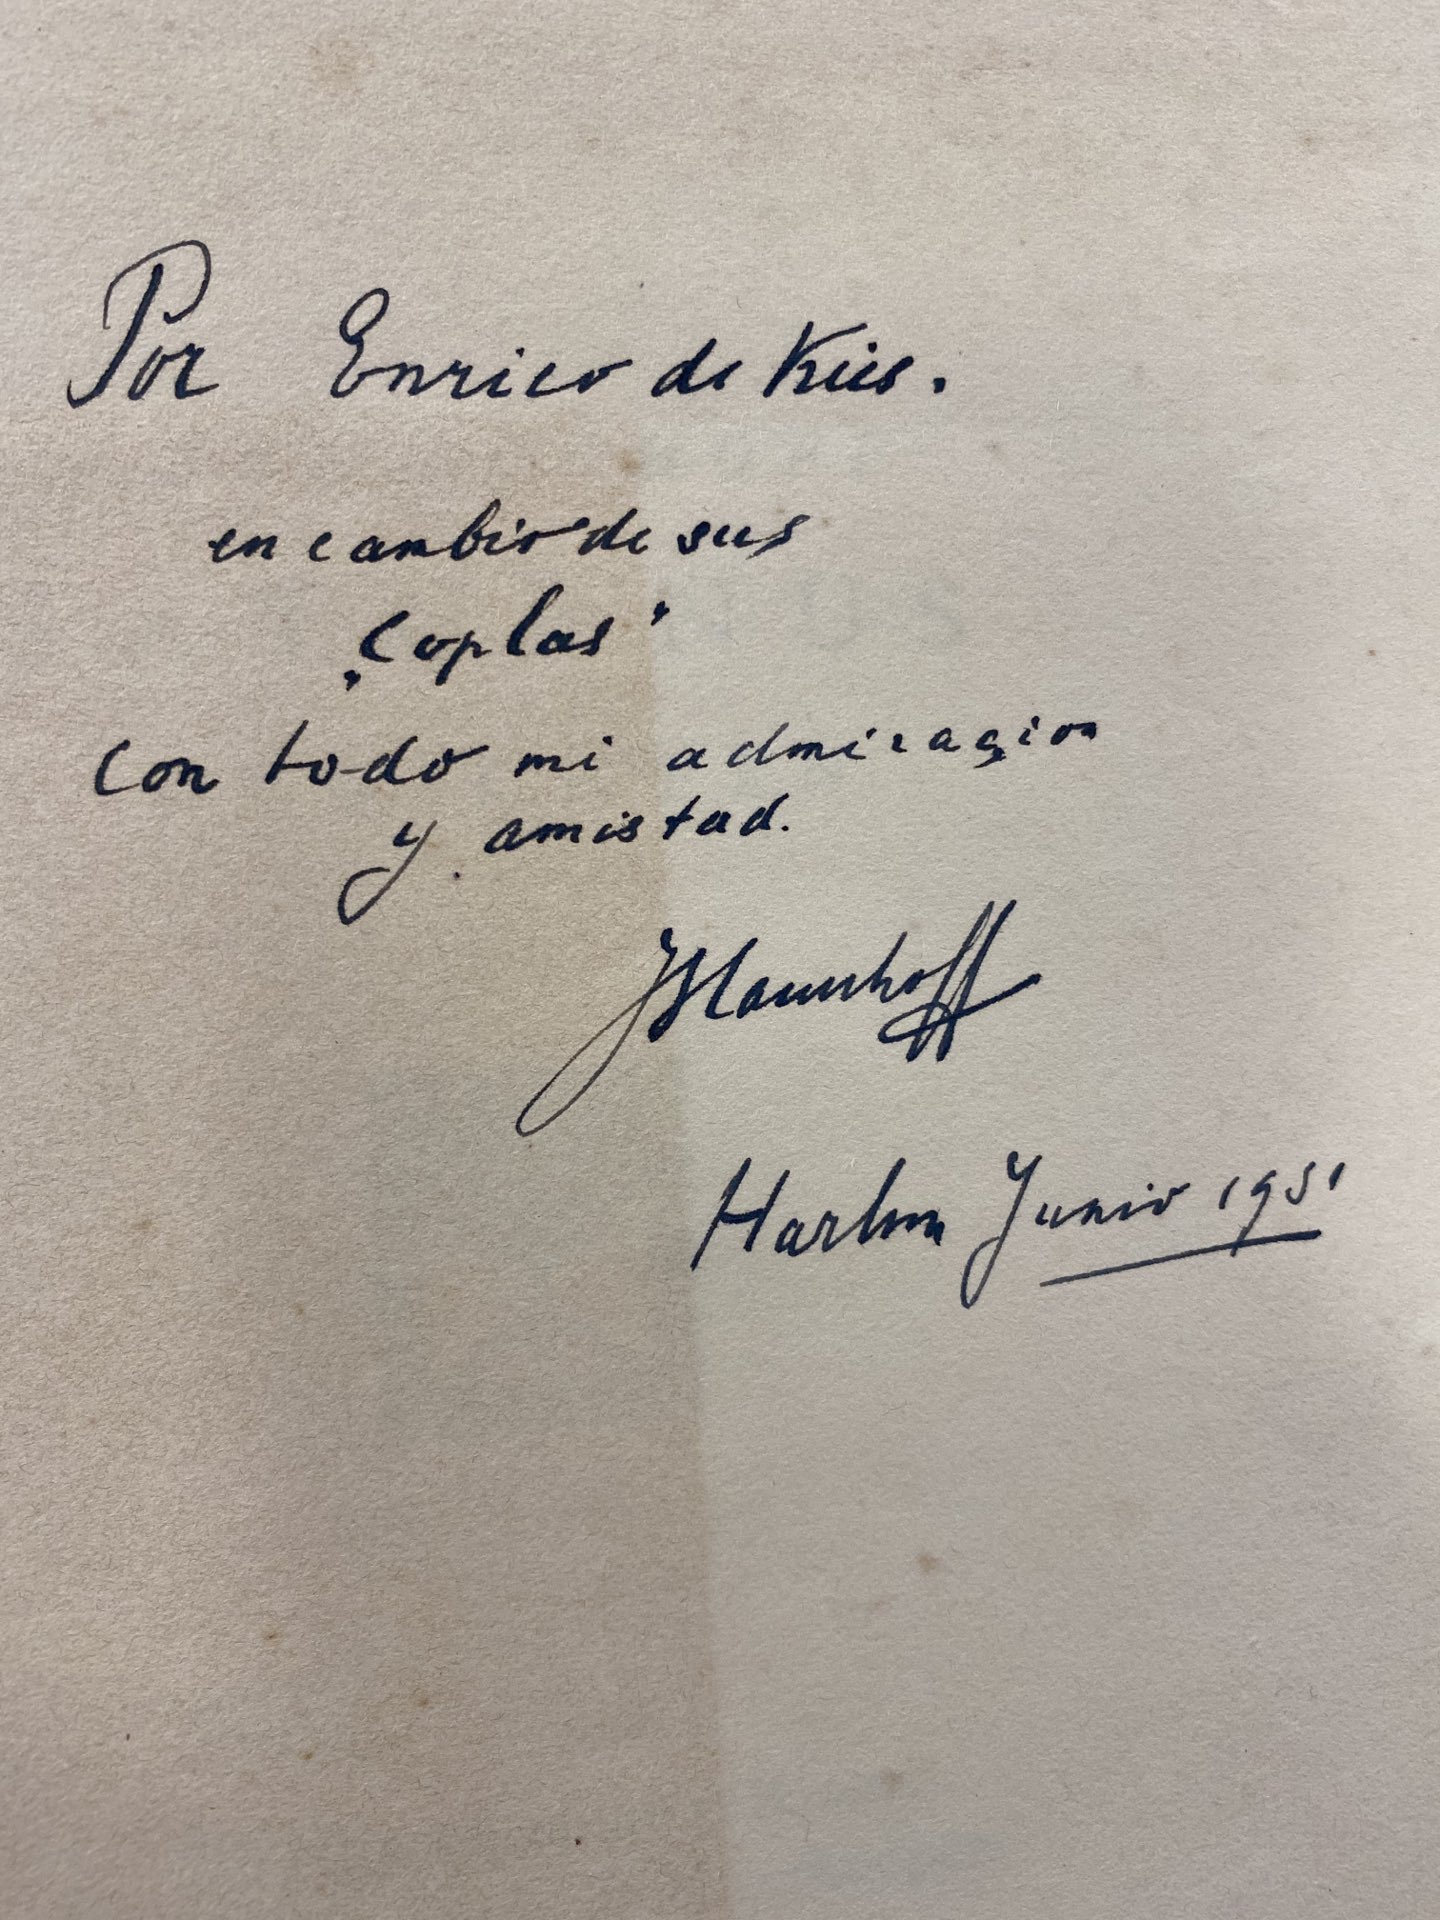 Por Enrico de Kies.
en cambio de sus
„Coplas"
Con todo mi admiraçion
y amistad.
Harlem Junio 1951